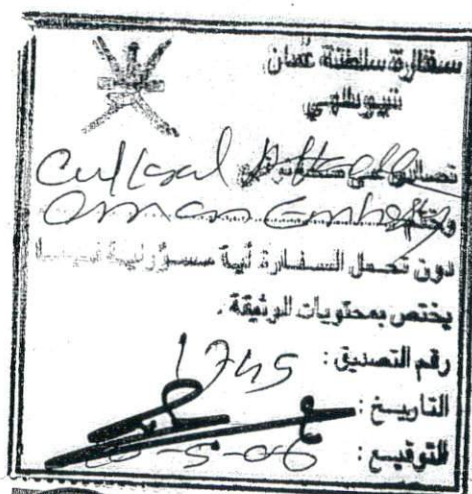 سفارة سلطنة عُمان
نيودلهي
تصادق على صحة توقيع
Cultural Attache
وختم
Oman Embassy
دون تحمل السفارة أية مسؤولية فيما
يختص بمحتويات الوثيقة .
رقم التصديق : 1745
التاريخ :
التوقيع : -5-06